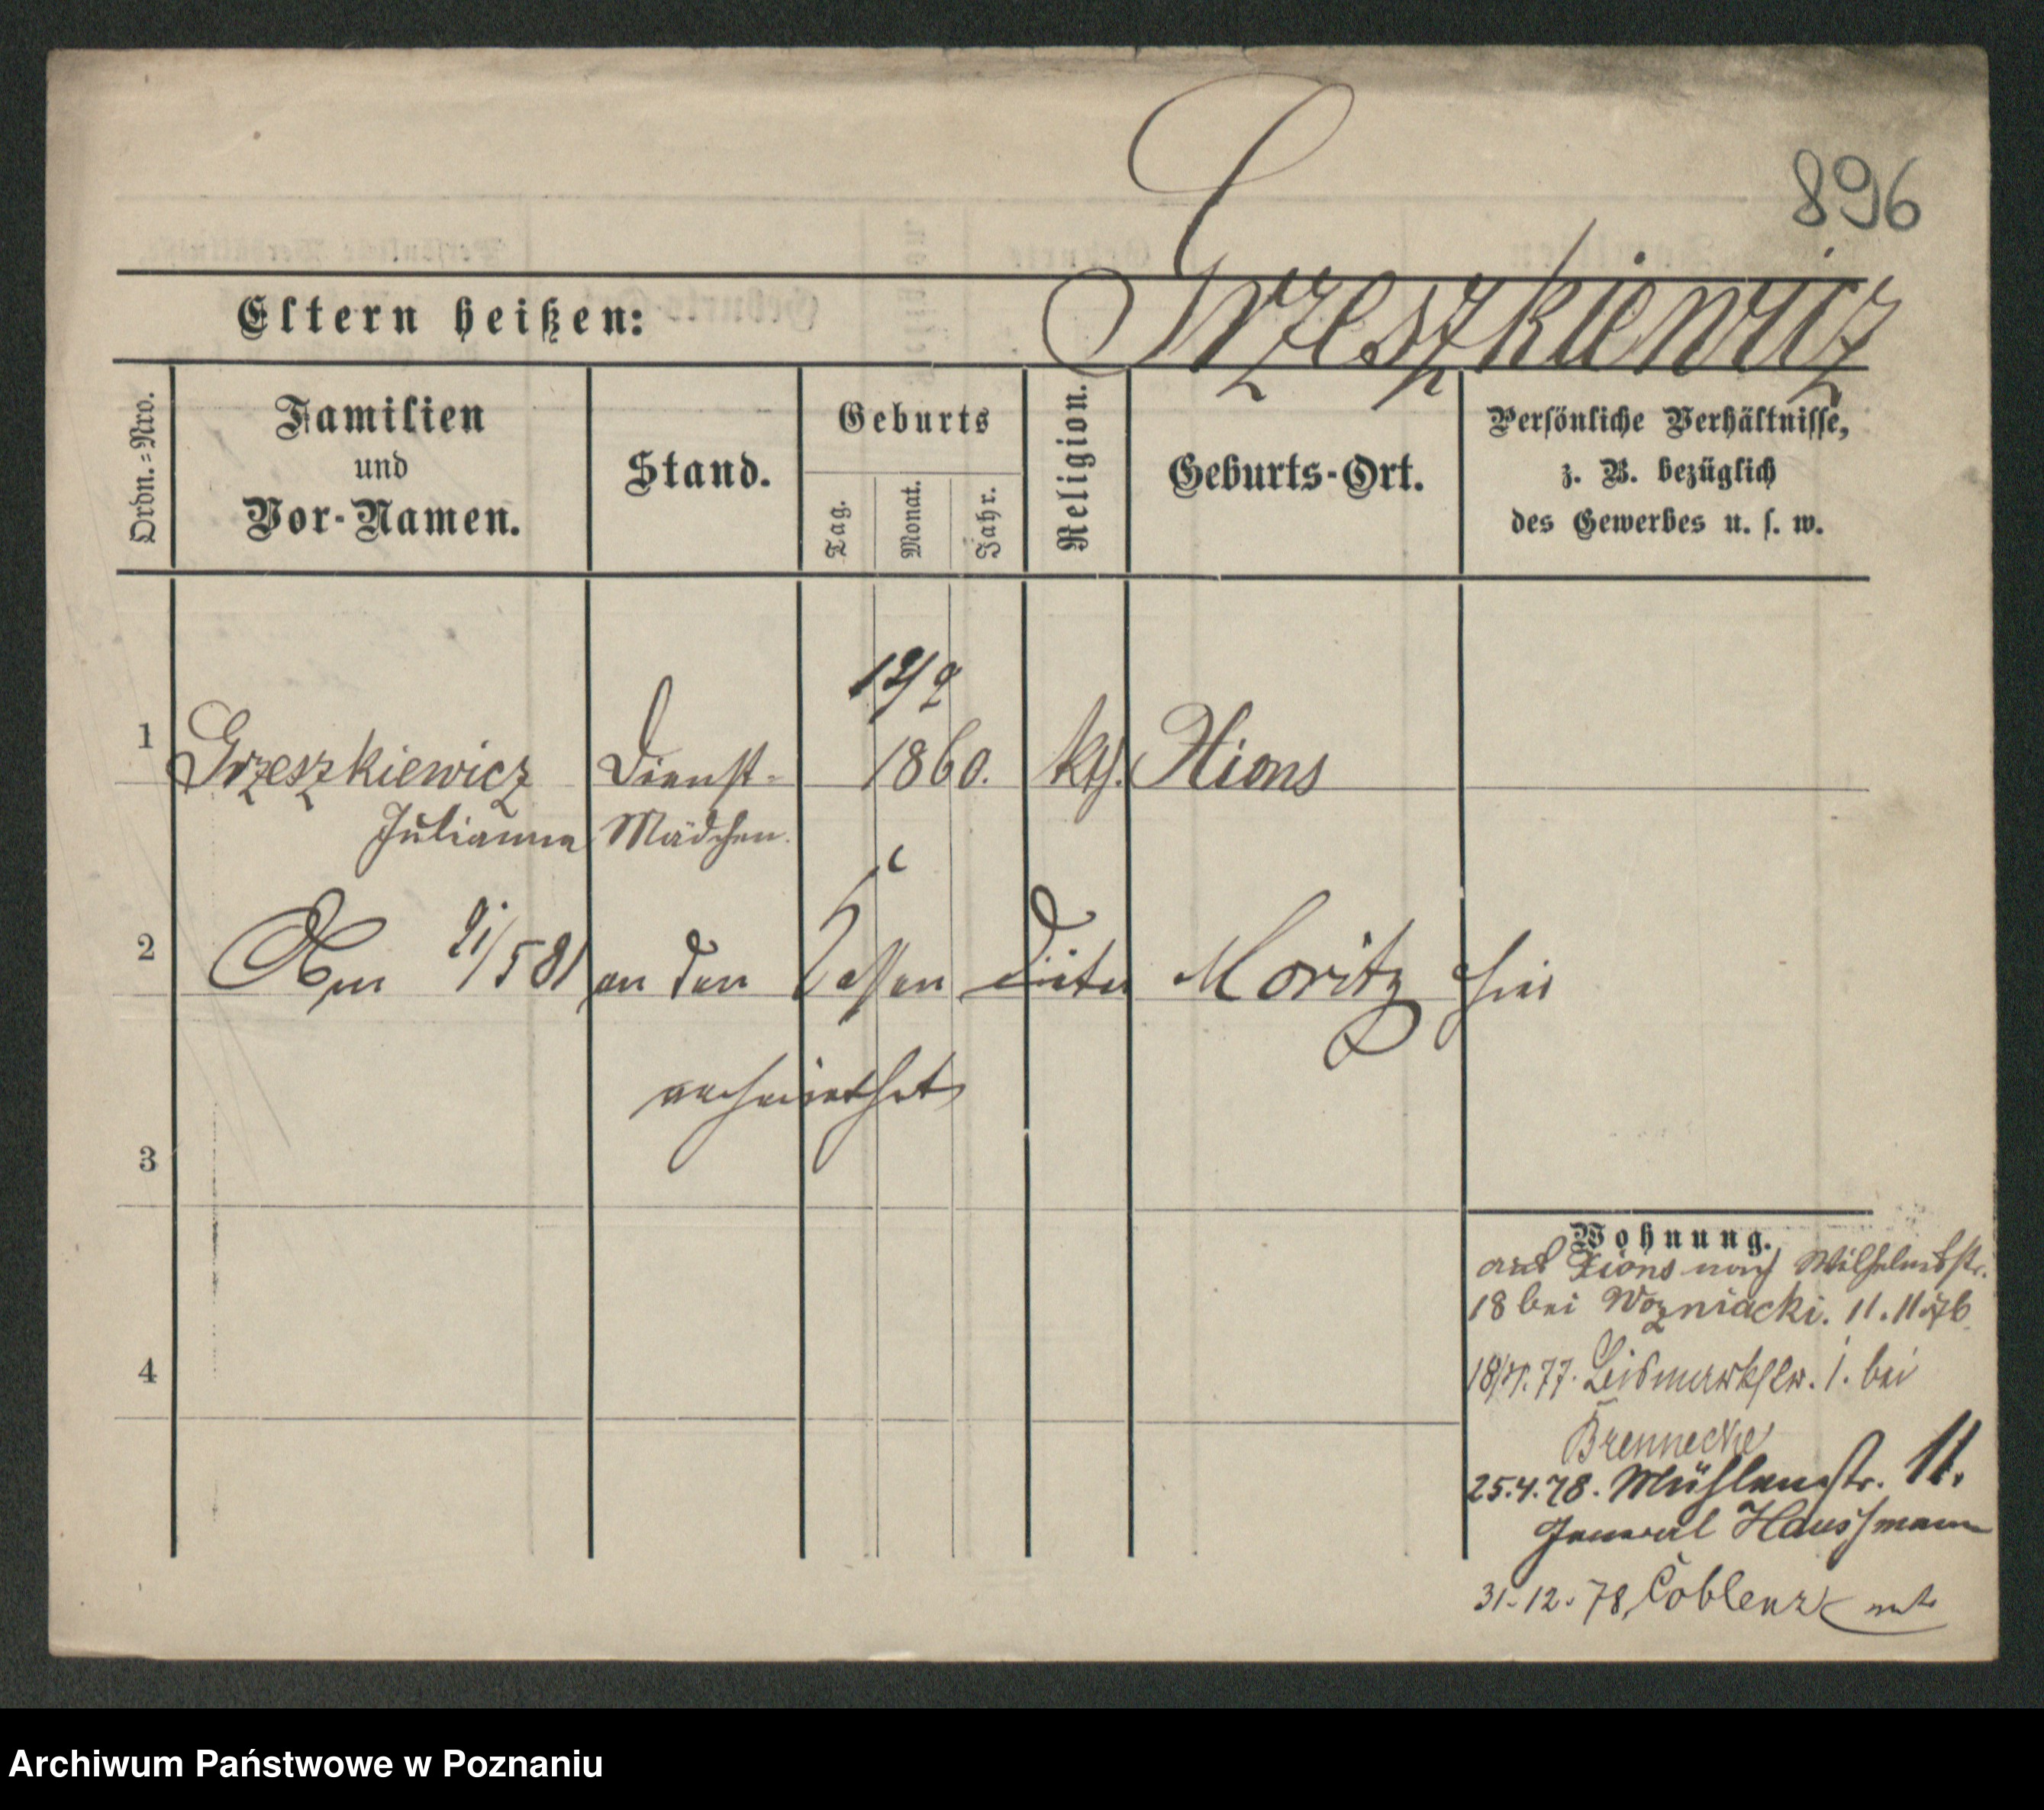 896
Grzeszkiewicz
Eltern heißen:
Ordn.=Nro.
Familien
und
Vor-Namen.
Stand.
Geburts
Tag.
Monat.
Jahr.
Religion.
Geburts-Ort.
Persönliche Verhältnisse,
z. B. bezüglich
des Gewerbes u. s. w.
1
Grzeszkiewicz
Julianna
Dienst-
Mädchen.
12/2
1860.
kth.
Xions
2
/5 81 an den Moritz hier
verheirathet
3
4
Wohnung.
aus Xions nach Wilhelmsstr.
18 bei Wozniacki. 11.11.76
77. 1. bei
Brennecke
25.4.78. Mühlenstr. 11.
General Haussmann
31.12.78, Coblenz
Archiwum Państwowe w Poznaniu